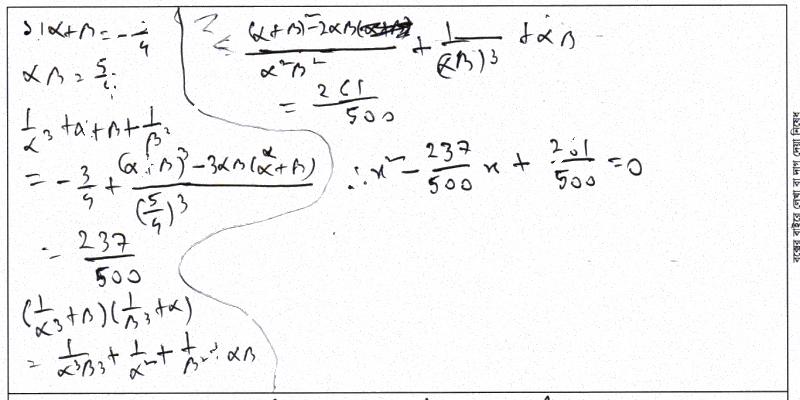 ১। α+β = -3/4
αβ = 5/4
1/α³ + α + β + 1/β³
= -3/4 + ((α+β)³ - 3αβ(α+β))/(5/4)³
= 237/500
(1/α³ + β)(1/β³ + α)
= 1/α³β³ + 1/α² + 1/β² + αβ
((α+β)² - 2αβ)/α²β² + 1/(αβ)³ + αβ
= 261/500
∴ x² - 237/500 x + 261/500 = 0
বক্সের বাইরে লেখা বা দাগ দেয়া নিষেধ